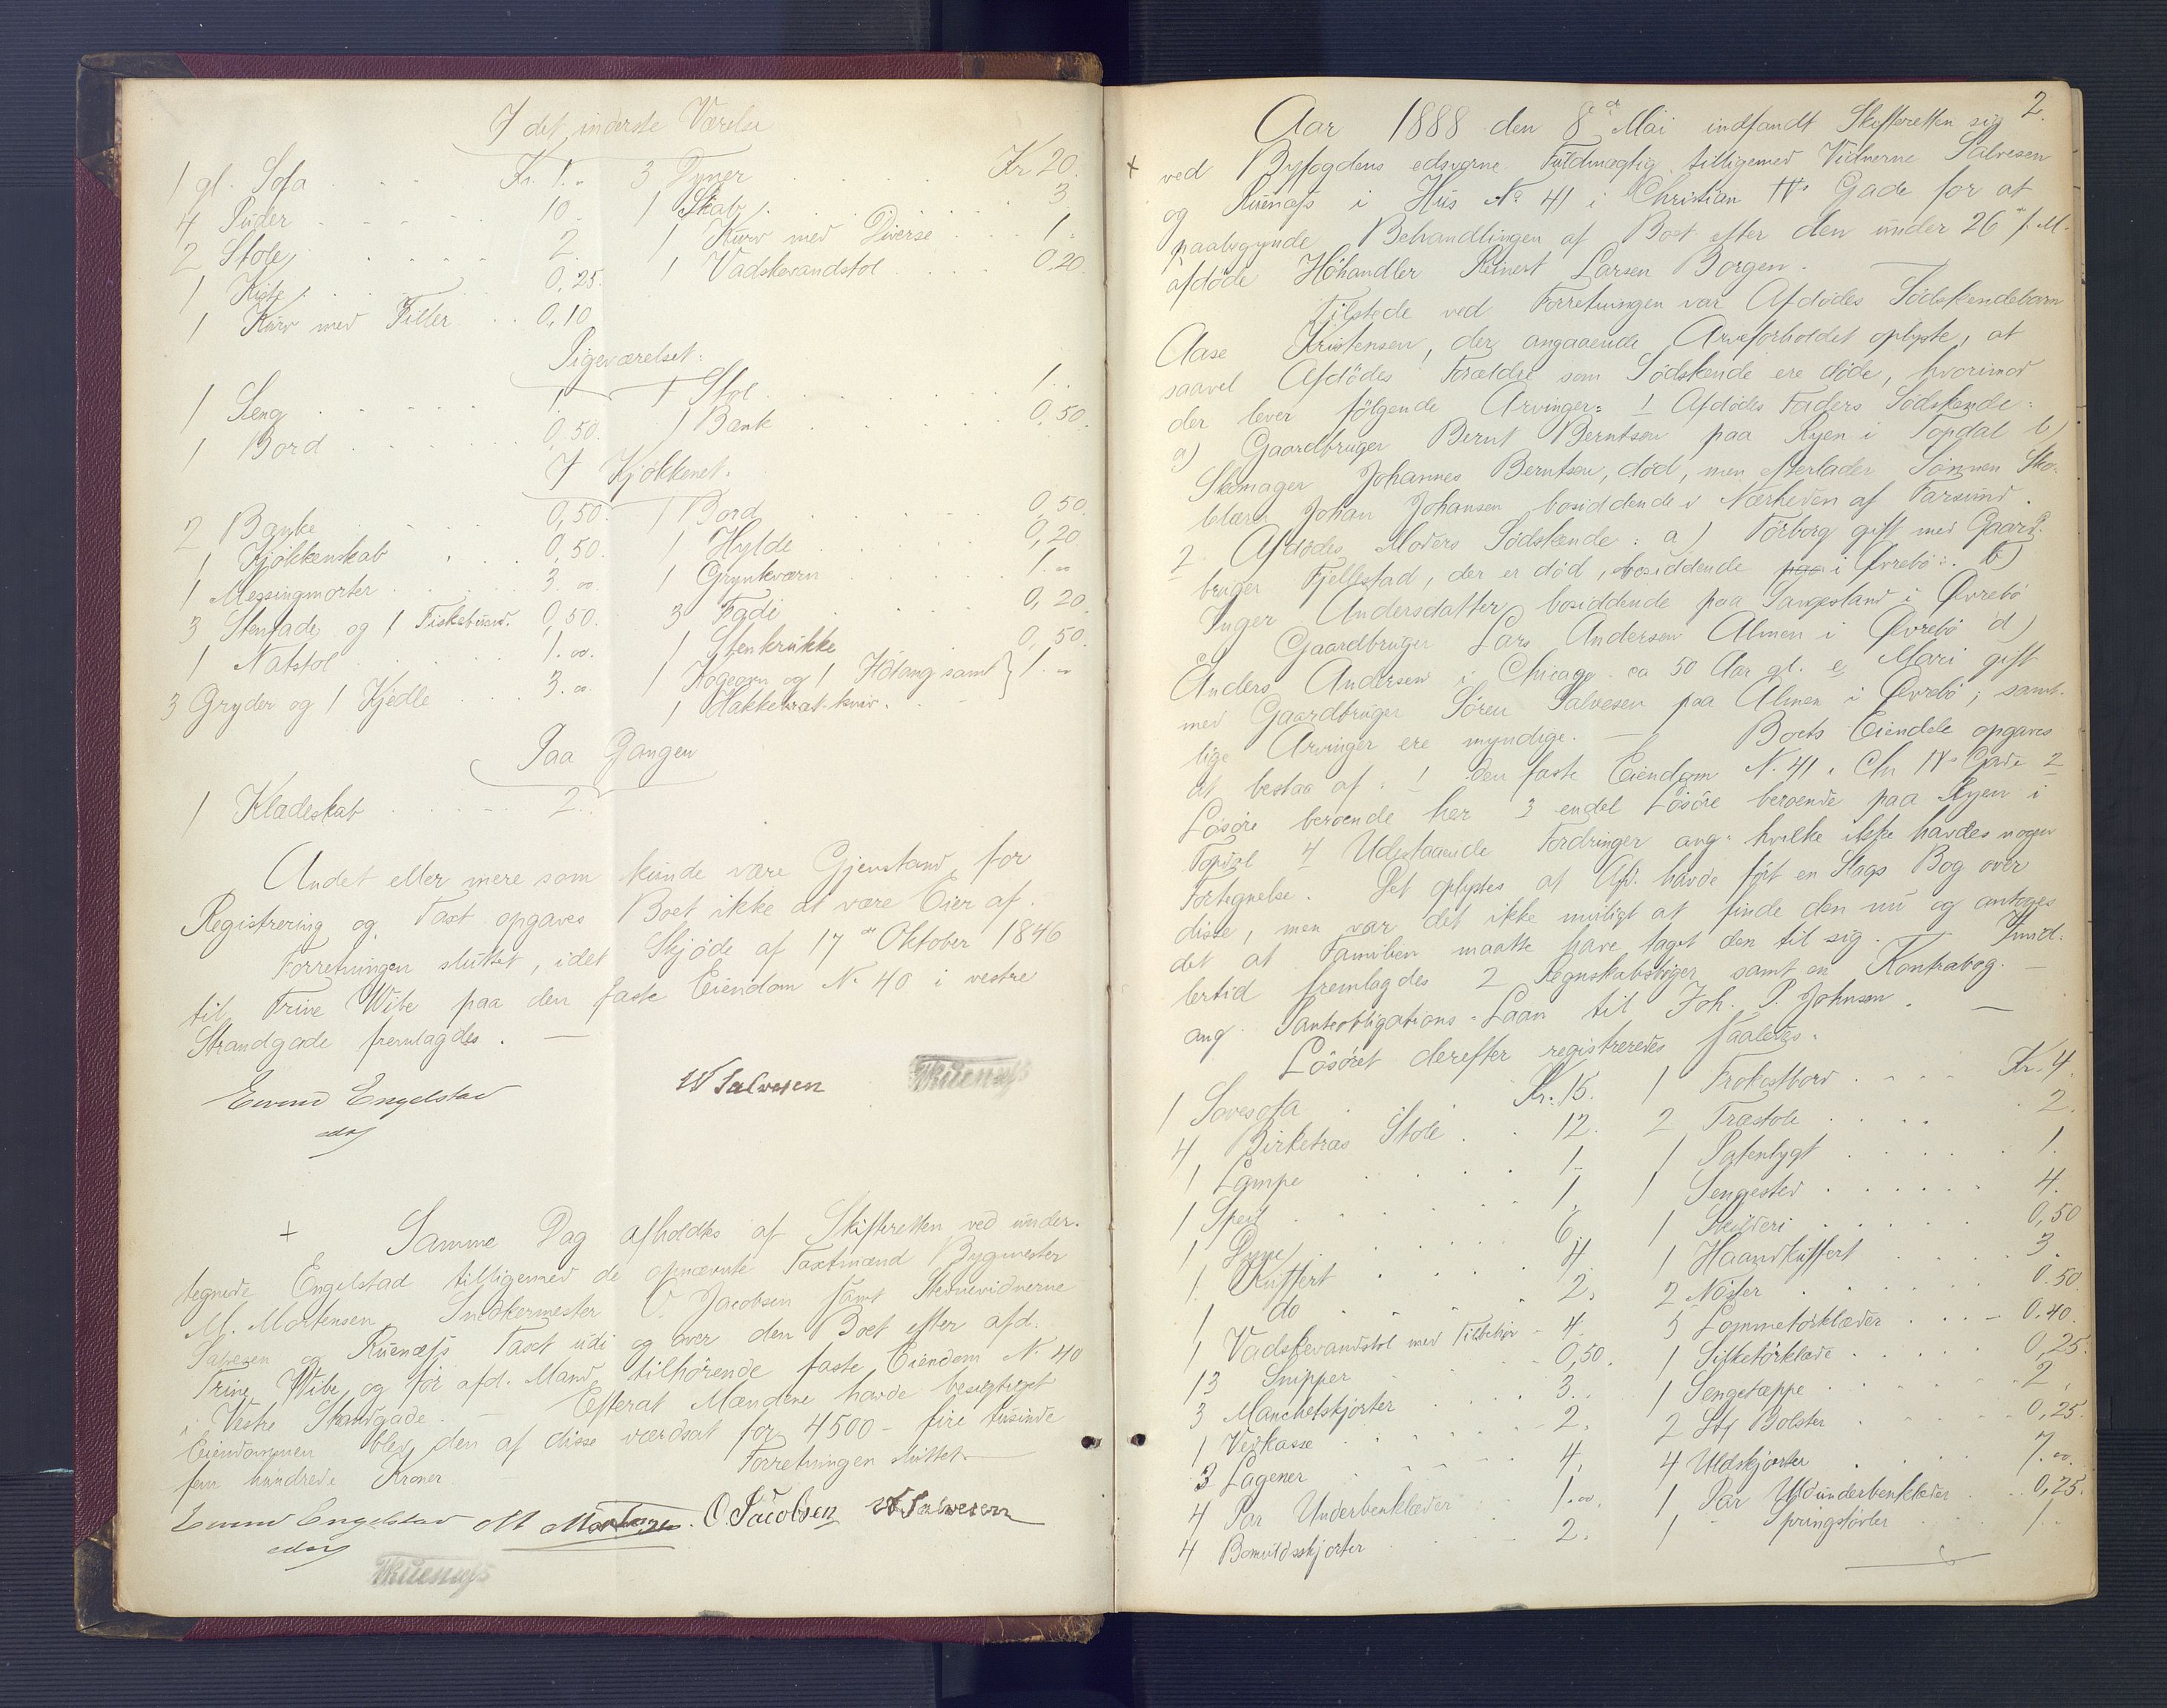 I det inderste Værelse
1 gl. Sofa . . . Kr. 1.. 3 Dyner . . . . . Kr 20.
4 Puder . . . . . 10 - 1 Skab . . . . . 3.
2 Stole . . . . . 2. 1 Kurv med Diverse . . . 1 -
1 Kiste . . . . . 0,25. 1 Vadskevandstol . . . . 0.20.
1 Kurv med Filler . . 0,10
Pigeværelset:
1 Seng . . . . . 1 - 1 Stol . . . . . 1..
1 Bord . . . . . 0,50. 1 Bænk . . . . . 0,50.
I Kjøkkenet.
2 Bænke . . . . . 0,50. 1 Bord . . . . . 0,50.
1 Kjøkkenskab . . . 0,50. 1 Hylde . . . . . 0,20
1 Messingmorter . . . 3. 00 1 Grynkværn . . . . 1. 00
3 Stenfade og 1 Fiskebund. 0,50. 3 Fade . . . . . 0,20.
1 Natstol . . . . . 1. 00. 1 Stenkrukke . . . . 0,50.
3 Gryder og 1 Kjedle . . 3. 00 1 Kogeovn og 1 Ildtang samt } 1. 00
1 Hakkebræt - kniv.
Paa Gangen
1 Klædeskab . . . . . 2..
Andet eller mere som kunde være Gjenstand for
Registrering og Taxt opgaves Boet ikke at være Eier af.
Forretningen sluttet, idet Skjøde af 17de Oktober 1846
til Trine Wibe paa den faste Eiendom N. 40 i vestre
Strandgade fremlagdes. —
Eivind Engelstad W Salvesen TRuenæss
edsv
+ Samme Dag afholdtes af Skifteretten ved under-
tegnede Engelstad tilligemed de opnævnte Taxtmænd Bygmester
M. Mortensen, Snedkermester O. Jacobsen samt Stevnevidnerne
Salvesen og Ruenæss Taxt udi og over den Boet efter afd.
Trine Wibe og før afd. Mand tilhørende faste Eiendom N. 40
i Vestre Strandgade. — Efterat Mændene havde besigtiget
Eiendommen blev den af disse værdsat for 4500 - fire tusinde
fem hundrede Kroner. Forretningen sluttet. —
Eivind Engelstad M Mortensen. O. Jacobsen W Salvesen
edsv
TRuenæss
2.
Aar 1888 den 8de Mai indfandt Skifteretten sig
+ ved Byfogdens edsvorne Fuldmægtig tilligemed Vidnerne Salvesen
og Ruenæss i Hus No 41 i Christian IVs Gade for at
paabegynde Behandlingen af Boet efter den under 26 f. M.
afdøde Høhandler Reinert Larsen Borgen. —
Tilstede ved Forretningen var Afdødes Sødskendebarn
Aase Kristensen, der angaaende Arveforholdet oplyste, at
saavel Afdødes Forældre som Sødskende ere døde, hvorimod
der lever følgende Arvinger: 1 Afdødes Faders Sødskende:
a) Gaardbruger Bernt Berntsen paa Ryen i Topdal b)
Skomager Johannes Berntsen, død, men efterlader Sønnen Sko-
lelærer Johan Johansen bosiddende i Nærheden af Farsund.
2 Afdødes Moders Sødskende: a) Torborg gift med Gaard-
bruger Fjellestad, der er død, bosiddende paa i Øvrebø. b)
Inger Andersdatter bosiddende paa Tangesland i Øvrebø
c) Gaardbruger Lars Andersen Almen i Øvrebø d)
Anders Andersen i Chicago ca 50 Aar gl. e Mari gift
med Gaardbruger Søren Salvesen paa Almen i Øvrebø; samt-
lige Arvinger ere myndige. — Boets Eiendele opgaves
at bestaa af: 1 den faste Eiendom N. 41 i Chr IVs Gade 2
Løsøre beroende her 3 endel Løsøre beroende paa Ryen i
Topdal 4 Udestaaende Fordringer ang. hvilke ikke havdes nogen
Fortegnelse. Det oplystes at Afd. havde ført en Slags Bog over
disse, men var det ikke muligt at finde den nu og antoges
det at Familien maatte have taget den til sig. — Imid-
lertid fremlagdes 2 Regnskabsbøger samt en Kontrabog
ang. Panteobligations - Laan til Joh. P. Johnsen. —
Løsøret derefter registreredes saaledes.
1 Sovesofa . . . Kr. 15. 1 Frokostbord . . . . Kr. 4.
4 Birketræs Stole . . 12. 2 Træstole . . . . 2.
1 Lampe . . . . . 1 - 1 Patentlygt . . . . . 1.
1 Speil . . . . . 1. 1 Sengested . . . . . 4.
1 Dyne . . . . . 6. 1 Skilderi . . . . . 0,50
1 Kuffert . . . . 4 1 Haandkuffert . . . . 3.
1 do . . . . . 2. 2 Nøster . . . . . 0.50
1 Vadskevandstol med Tilbehør - 4. 5 Lommetørklæder . . . - 0.40.
13 Snipper . . . . 0,50. 1 Silketørklæde . . . . . 0,25.
3 Manchetskjorter . . . 3. . 1 Sengetæppe . . . . . 2.
1 Vedkasse . . . . . 2. 2 Stk Bolster . . . . . 0,25.
3 Lagener . . . . . 4. 4 Uldskjorter . . . . 7. 00.
4 Par Underbenklæder . . 1. 00. 1 Par Uldunderbenklæder . . 0,25.
4 Bomuldsskjorter . . . . 2. 1 - Springstøvler . . . 1 -